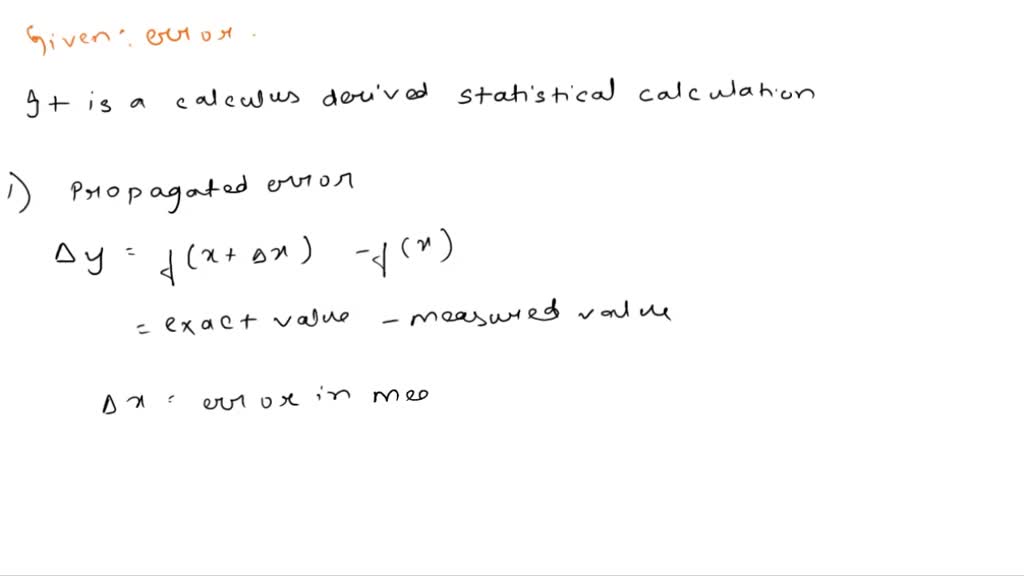 Given: error.
It is a calculus derived statistical calculation
1) Propagated error
Δy = f(x + Δx) - f(x)
= exact value - measured value
Δx = error in mea